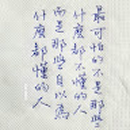 最可怕的不是那些
什麼都不懂的人
而是那些自以為
什麼都懂的人